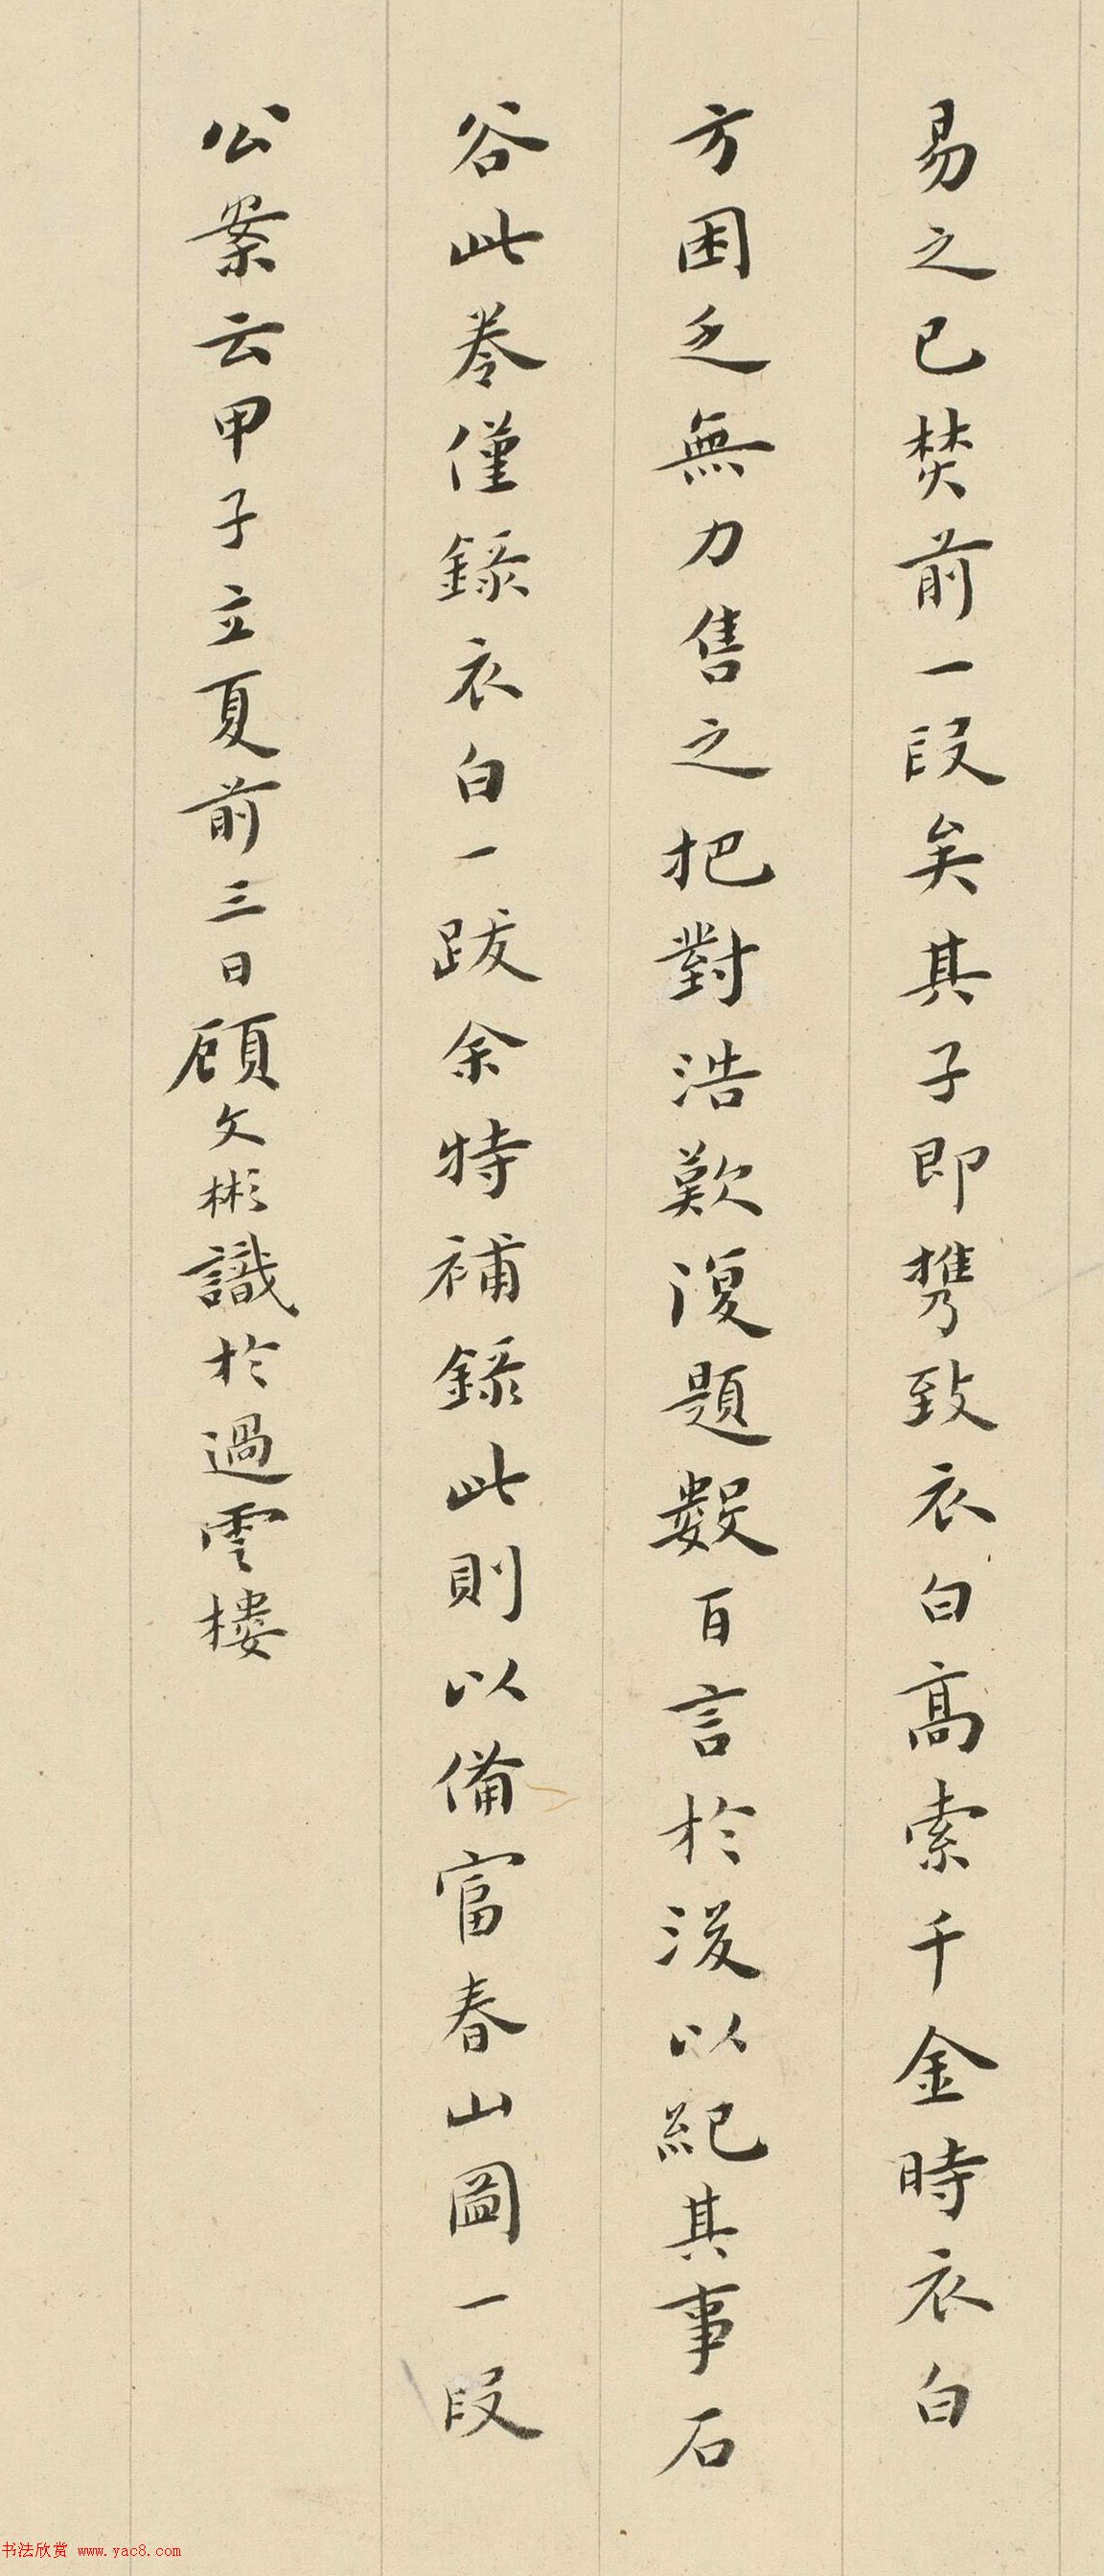 易之已焚前一段矣其子即携致衣白高索千金時衣白
方困乏無力售之把對浩歎復題數百言於後以紀其事石
谷此卷僅錄衣白一跋余特補錄此則以備富春山圖一段
公案云甲子立夏前三日顧文彬識於過雲樓
书法欣赏 www.yac8.com